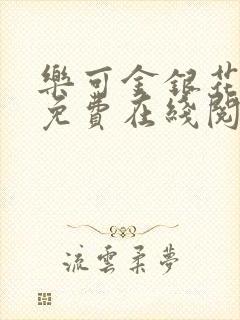 樂可金銀花
免費在綫閱
流雲柔夢